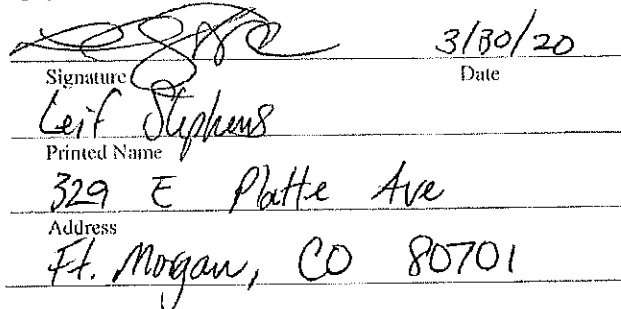 3/30/20
Signature Date
Leif Stephens
Printed Name
329 E Platte Ave
Address
Ft. Morgan, CO 80701